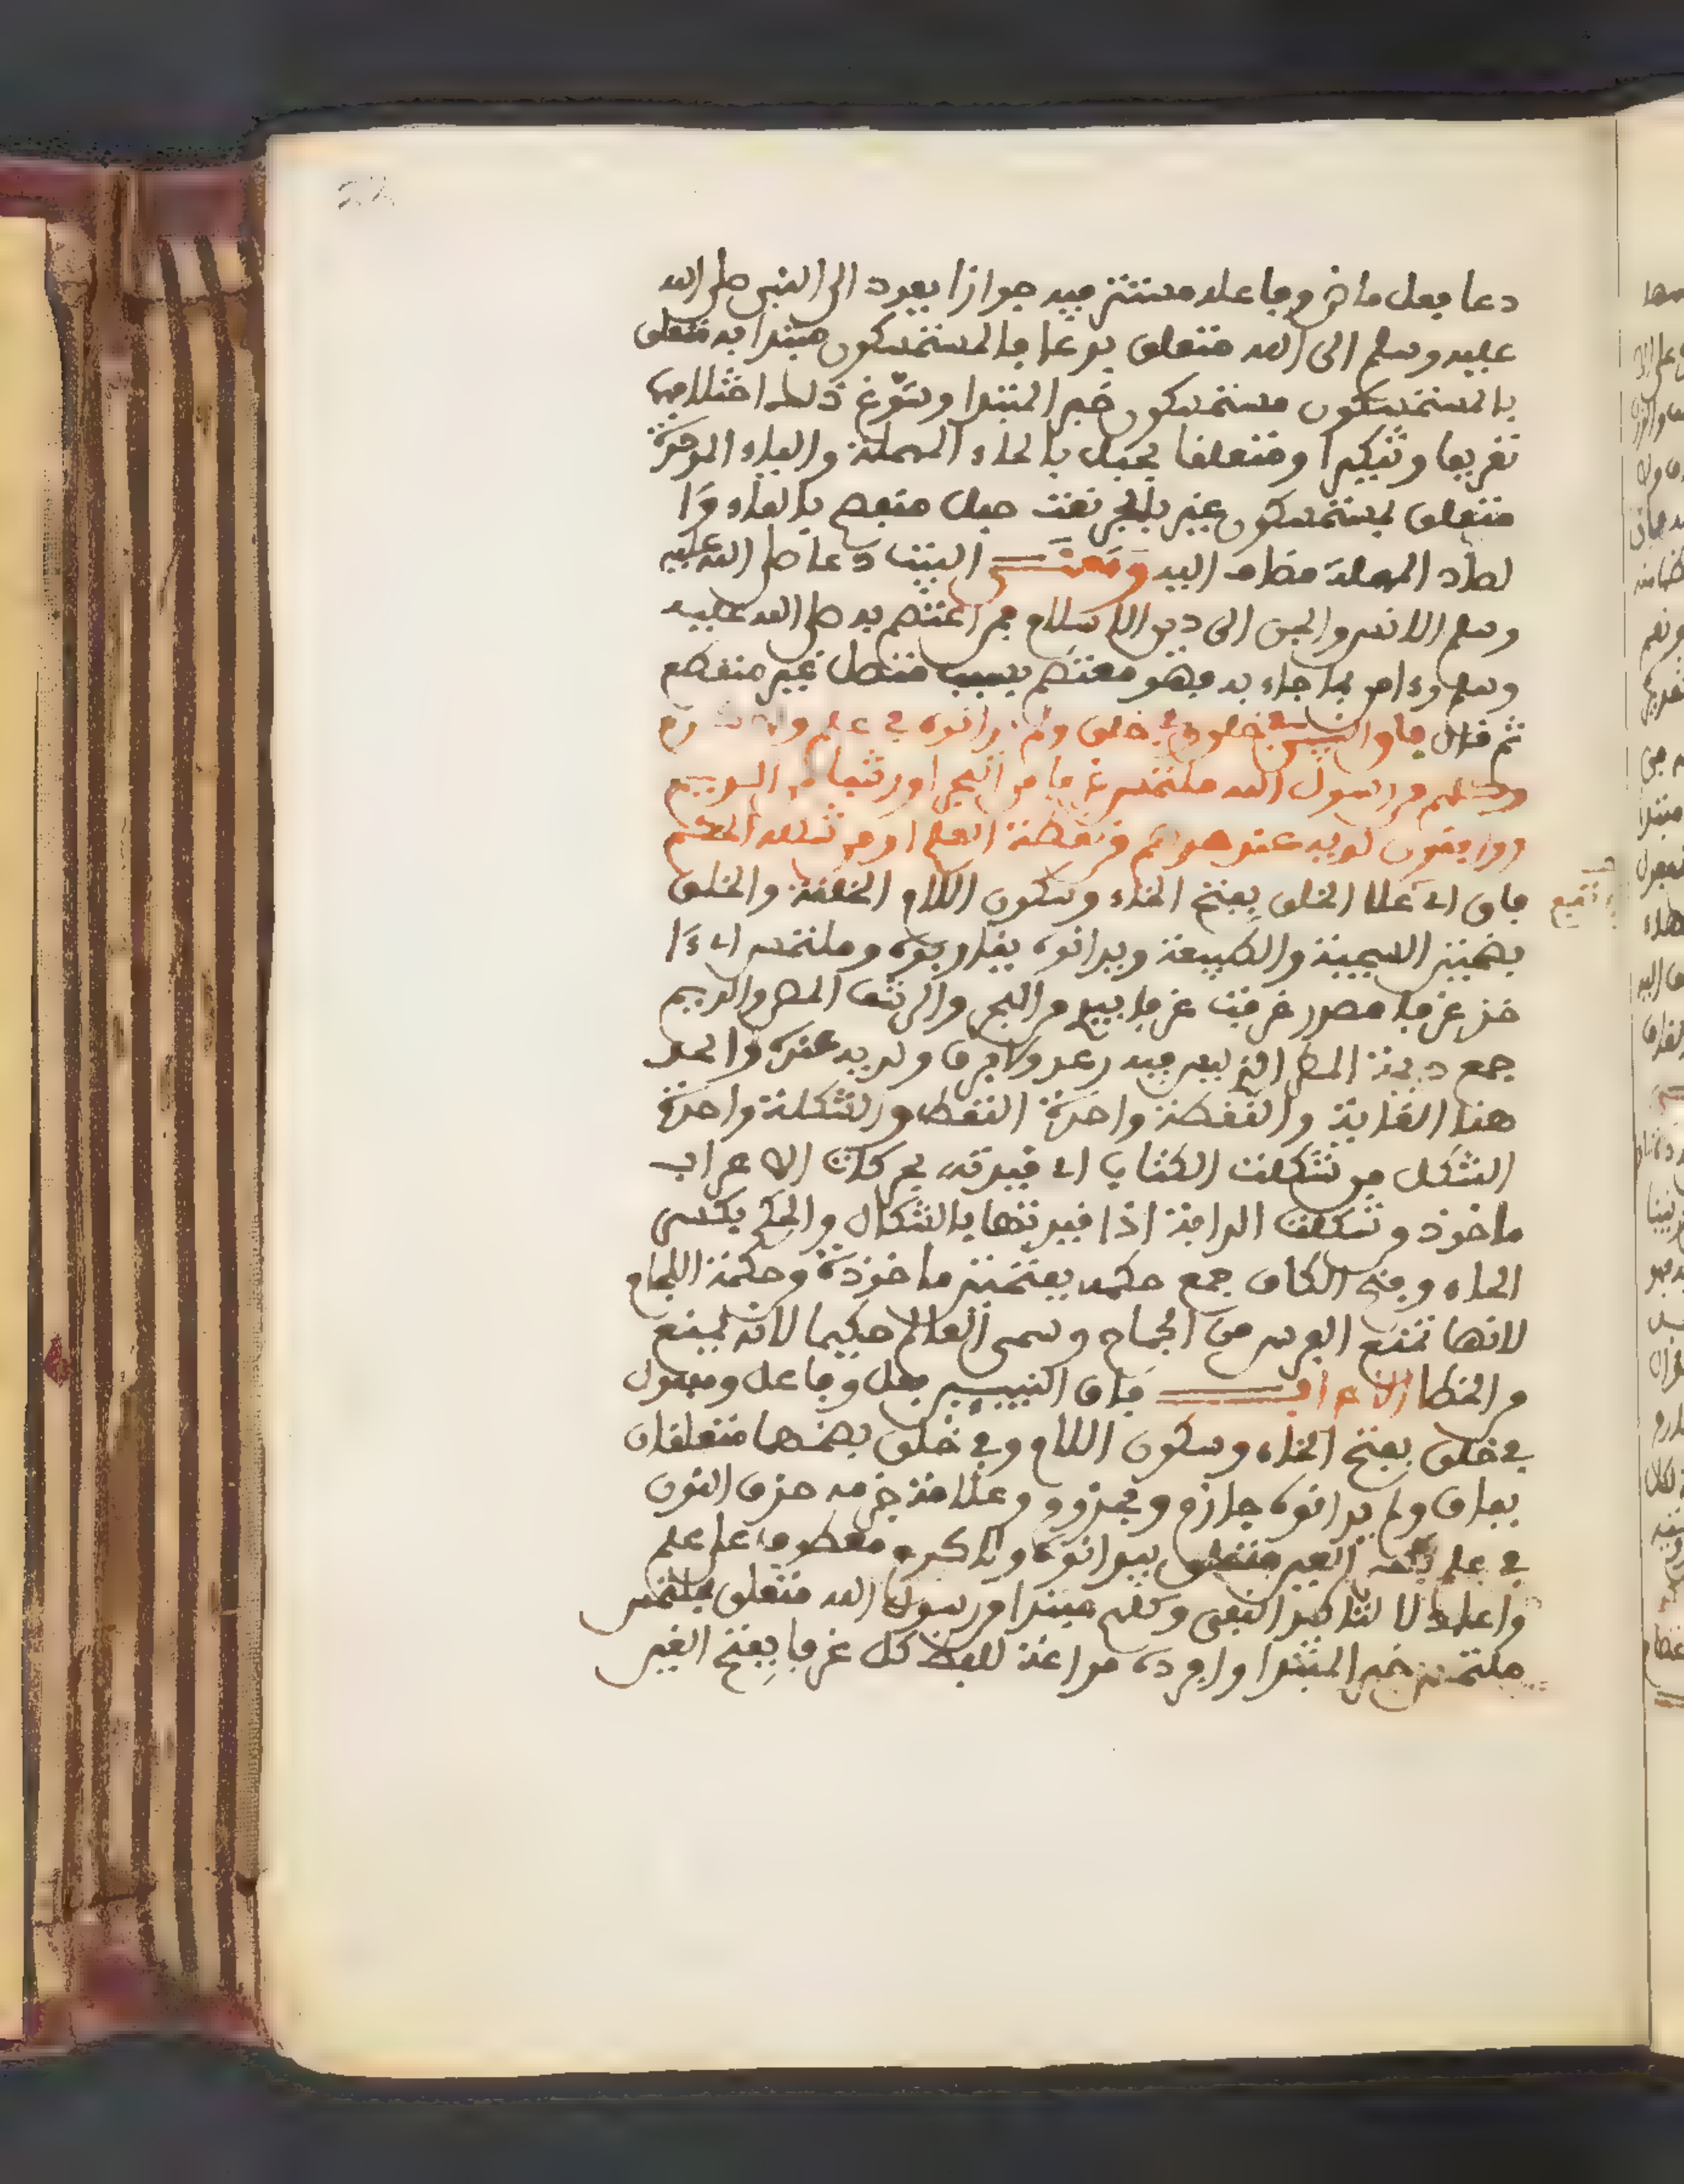 دعا فعل ماض وفاعله مستتر فيه جوازا يعود الى النبي صلى الله
عليه وسلم الى الله متعلق بدعا فالمستمسكون مبتدا به متعلق
بالمستمسكون مستمسكون خبر المبتدا وسوّغ ذلك اختلافهما
تعريفا وتنكيرا ومتعلقا بحبل بالحاء المهملة والباء الموحدة
متعلق بمستمسكون غير بالجر نعت حبل منفصم بالفاء وا
لصاد المهملة مضاف اليه ومعنى البيت دعا صلى الله عليه
وسلم الانس والجن الى دين الاسلام فمن اعتصم به صلى الله عليه
وسلم وءامن بما جاء به فهو معتصم بسبب متصل غير منقطع
ثم قال فاق النبيين في خلق وفي خلق ولم يدانوه في علم ولا كرم
وكلهم من رسول الله ملتمس غرفا من البحر او رشفا من الديم
وواقفون لديه عند حدهم من نقطة العلم او من شكلة الحكم
فاق اي علا الخلق بفتح الخاء وسكون اللام الخلقة والخلق
بضمتين السجية والطبيعة ويدانوه يقاربوه وملتمس اي ءا
خذ غرفا مصدر غرفت غرفا بيد من البحر والرشف المص والديم
جمع ديمة المطر الذي ليس فيه رعد ولا برق ولديه عنده والحد
هنا الغاية والنقطة واحدة النقط والشكلة واحدة
الشكل من شكلت الكتاب اي قيدته بحركات الاعراب
ماخوذ وشكلت الدابة اذا قيدتها بالشكال والحكم بكسر
الحاء وفتح الكاف جمع حكمة بفتحتين ماخوذة وحكمة اللجام
لانها تمنع الفرس من الجماح وسمى العالم حكيما لانه يمنع
من الخطا الاعراب فاق النبيين فعل وفاعل ومفعول
في خلق بفتح الخاء وسكون اللام وفي خلق بضمهما متعلقان
بفاق ولم يدانوه جازم ومجزوم وعلامة جزمه حذف النون
في علم متعلق بيدانوه ولا كرم معطوف على علم
واعاد لا لتاكيد النفي وكلهم مبتدا من رسول الله متعلق بملتمس
ملتمس خبر المبتدا وافرده مراعة للفظ كل غرفا بفتح الغين